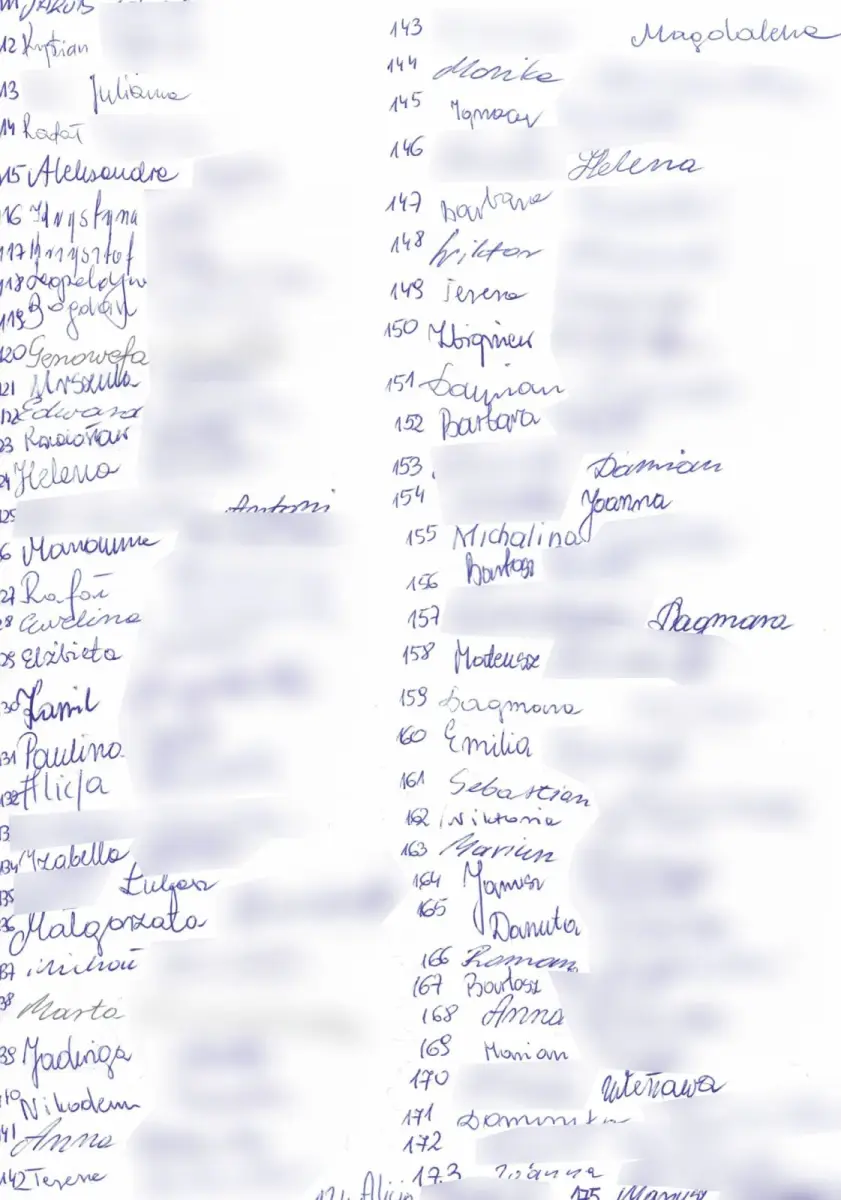 JAKUB
12 Krystian
13 Julianna
14 Rafał
15 Aleksandra
116 Krystyna
117 Krzysztof
118 Leopoldyn
119 Bogdan
120 Genowefa
121 Urszula
122 Edward
23 Radosław
24 Helena
125 Antoni
6 Marianna
27 Rafał
28 Ewelina
29 Elżbieta
30 Kamil
131 Paulina
132 Alicja
13
134 Izabella
135 Łukasz
36 Małgorzata
37 Michał
38 Marta
39 Jadwiga
140 Nikodem
141 Anna
142 Teresa
143 Magdalena
144 Monika
145 Ignacy
146 Helena
147 Barbara
148 Wiktor
149 Teresa
150 Zbigniew
151 Damian
152 Barbara
153 Damian
154 Joanna
155 Michalina
156 Bartosz
157 Dagmara
158 Mateusz
159 Dagmara
160 Emilia
161 Sebastian
162 Wiktoria
163 Marian
164 Janusz
165 Danuta
166 Roman
167 Bartosz
168 Anna
169 Marian
170 Wiesława
171 Dominika
172
173 Joanna
174 Alicja
175 Mariusz